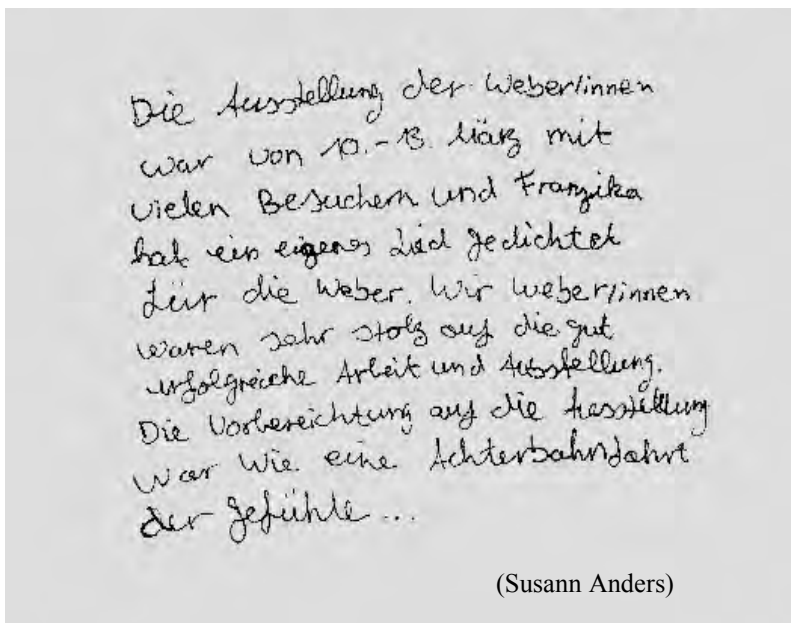 Die Ausstellung der Weber/innen
war von 10.-13. März mit
vielen Besuchern und Franzika
hat ein eigenes Lied gedichtet
für die Weber. Wir Weber/innen
waren sehr stolz auf die gut
erfolgreiche Arbeit und Ausstellung.
Die Vorbereichtung auf die Ausstellung
war wie eine Achterbahnfahrt
der Gefühle...
(Susann Anders)